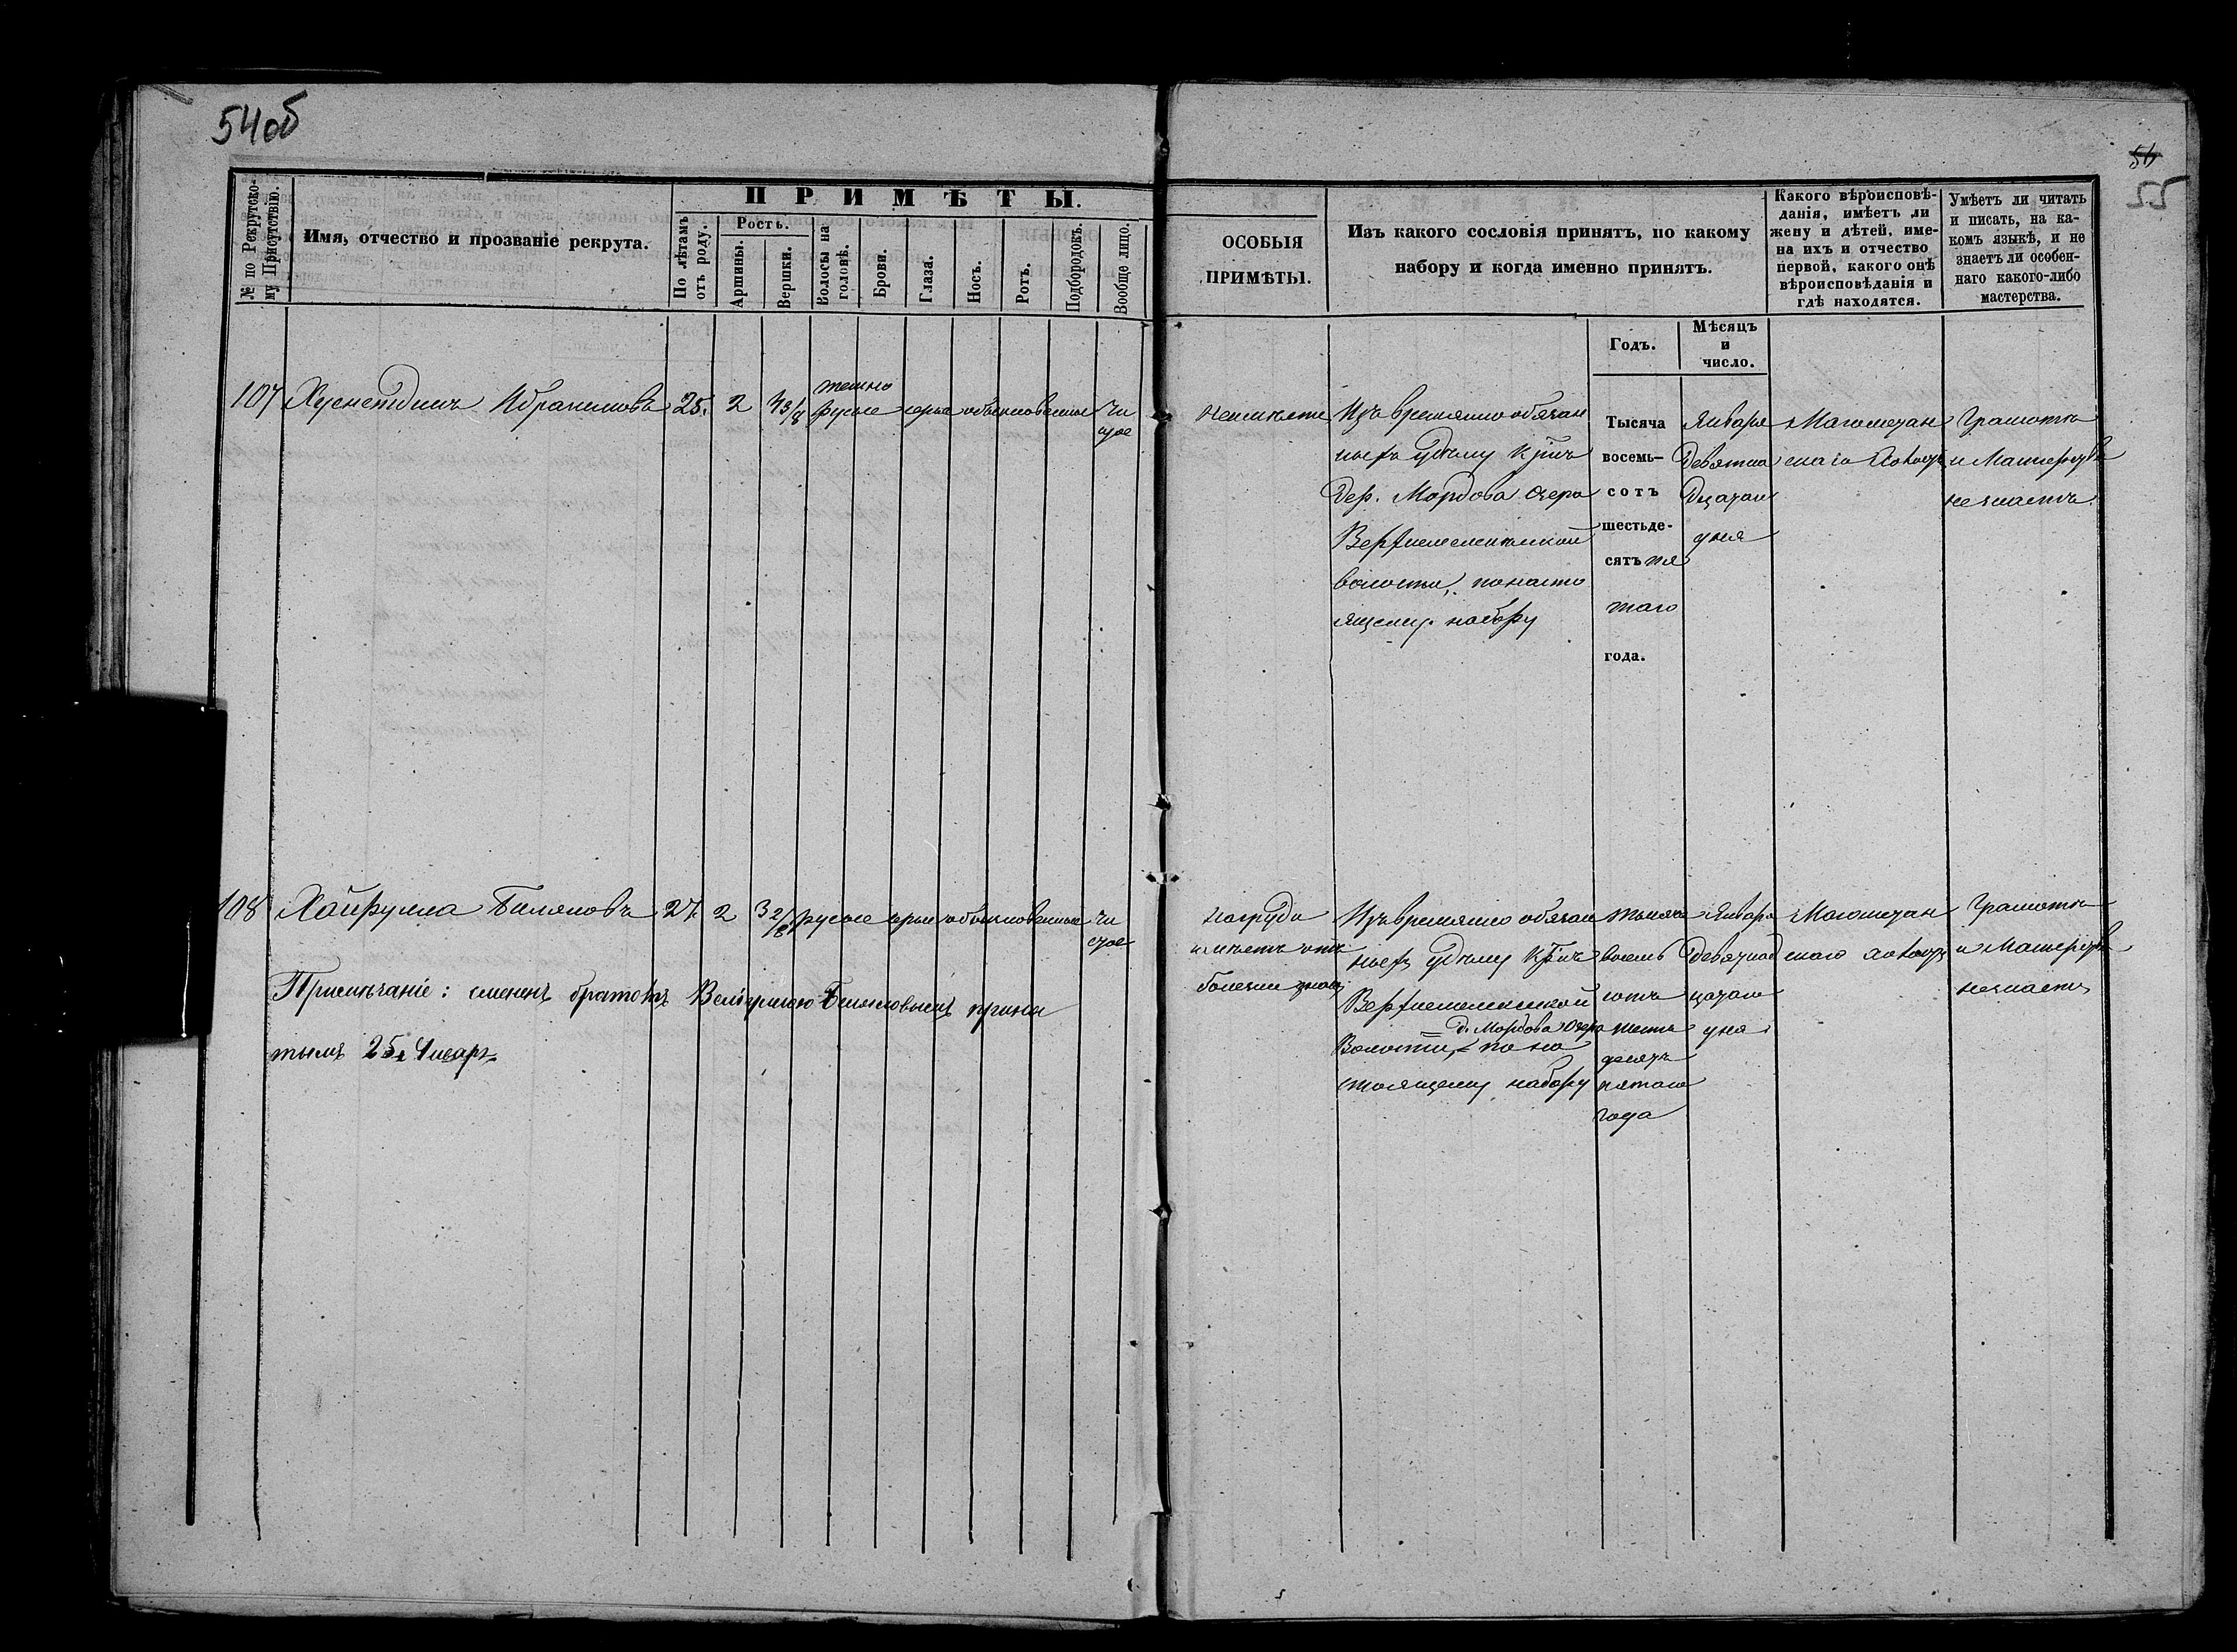 54об
54
55
№ по Рекрутско-
му Присутствію.
Имя, отчество и прозваніе рекрута.
ПРИМѢТЫ.
По лѣтамъ
отъ роду.
Ростъ.
Аршины.
Вершки.
Волосы на
головѣ.
Брови.
Глаза.
Носъ.
Ротъ.
Подбородокъ.
Вообще лицо.
ОСОБЫЯ
ПРИМѢТЫ.
Изъ какого сословія принятъ, по какому
набору и когда именно принятъ.
Годъ.
Мѣсяцъ
и
число.
Какого вѣроисповѣ-
данія, имѣетъ ли
жену и дѣтей, име-
на ихъ и отчество
первой, какого онѣ
вѣроисповѣданія и
гдѣ находятся.
Умѣетъ ли читать
и писать, на ка-
комъ языкѣ, и не
знаетъ ли особен-
наго какого-либо
мастерства.
107 Хуснетдинъ Ибрагимовъ 25. 2 4 3/8
темно
русые серые обыкновенные чи
стое
неимѣетъ
Изъ временно обязан
ныхъ удѣлу кр-нъ
дер. Мордова Озера
волости, по насто
ящему набору
Тысяча
восемь-
сотъ
шестьде-
сятъ пя
таго
года.
Января
девятна
дцатаго
дня
Магометан
скаго холостъ
Грамоты
и мастерства
не знаетъ
108 Хайрулла Биляловъ 27. 2 3 2/8 русые серые обыкновенные чи
стое
Примѣчаніе: смененъ братомъ Биляловымъ приня
тымъ 25 Января
На груди
имѣетъ отъ
болезни знаки
Изъ временно обязан
ныхъ удѣлу кр-нъ
д. Мордова Озера
Волости, по на
стоящему набору
тысяча
восемь
сотъ
шесть
десятъ
пятаго
года
Января
девятнад
цатаго
дня
Магометан
скаго холостъ
Грамоты
и мастерства
не знаетъ